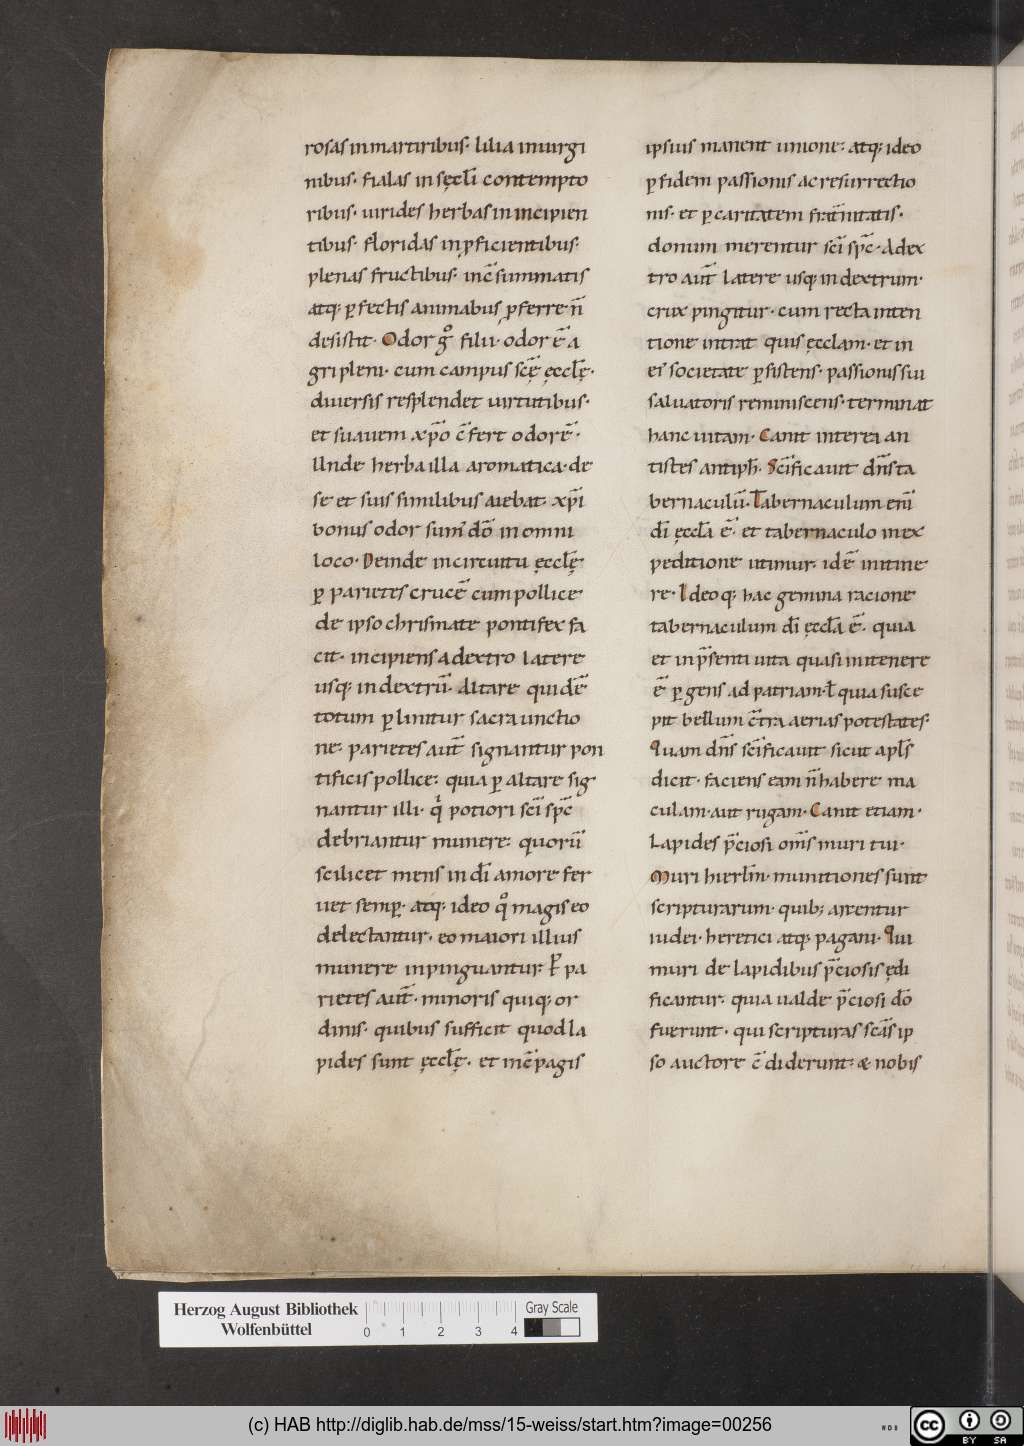 rosas in martiribus· lilia in uirgi
nibus· fialas in sęcl̄i contempto
ribus· uirides herbas in incipien
tibus· floridas in ꝓficientibus·
plenas fructibus· inc̄summatis
atq; ꝑfectis animabus ꝓferre n̄
desistit· Odor gͦ filii· odor ē a
gri pleni· cum campus scę̄ ęccl̄ę·
diuersis resplendet uirtutibus·
et suauem xp̄o c̄fert odorē·
Unde herba illa aromatica· de
se et suis similibus aiebat· xp̄i
bonus odor sum̄ dō in omni
loco· Deinde in circuitu ęccl̄ę
ꝑ parietes crucē cum pollice
de ipso chrismate pontifex fa
cit· incipiens a dextro latere
usq; in dextrū· Altare quidē
totum ꝑlinitur sacra unctio
ne: parietes aut̄ signantur pon
tificis pollice: quia ꝑ altare sig
nantur illi· qi potiori sc̄i sp̄c
debriantur munere: quorū
scilicet mens in dī amore fer
uet semꝑ· atq; ideo qͦ magis eo
delectantur· eo maiori illius
munere inpinguantur: ꝑ pa
rietes aut̄· minoris quiq; or
dinis· quibus sufficit quod la
pides sunt ęccl̄ę· et inc̄pagis
ipsius manent unione: atq; ideo
ꝑ fidem passionis ac resurrectio
nis· et ꝑ caritatem frat̄nitatis·
donum merentur sc̄i sp̄c· A dex
tro aut̄ latere usq; in dextrum·
crux pingitur· cum recta inten
tione intrat quis ęcclam· et in
ei societate ꝑsistens· passionis sui
saluatoris reminiscens· terminat
hanc uitam· Canit interea an
tistes antiph̄· Sc̄ificauit dn̄s ta
bernaculū· Tabernaculum eni̅
dī ęccl̄a ē· et tabernaculo in ex
peditione utimur· idē in itine
re· Ideoq; hac gemina racione
tabernaculum dī ęccl̄a ē· quia
et in p̄senti uita quasi in itenere
ē ꝑgens ad patriam· ł quia susce
pit bellum c̄tra aerias potestates·
Quam dn̄s sc̄ificauit sicut apl̄s
dicit· faciens eam n̄ habere ma
culam· aut rugam· Canit etiam·
Lapides p̄ciosi om̄s muri tui·
Muri hierl̄m· munitiones sunt
scripturarum· quib; arcentur
iudei· heretici atq; pagani· Qui
muri de lapidibus p̄ciosis ędi
ficantur: quia ualde p̄ciosi dō
fuerunt· qui scripturas scā̄s ip
so auctore c̄diderunt: & nobis
Herzog August Bibliothek
Wolfenbüttel
0 1 2 3 4
Gray Scale
(c) HAB http://diglib.hab.de/mss/15-weiss/start.htm?image=00256
WDB
cc
BY SA